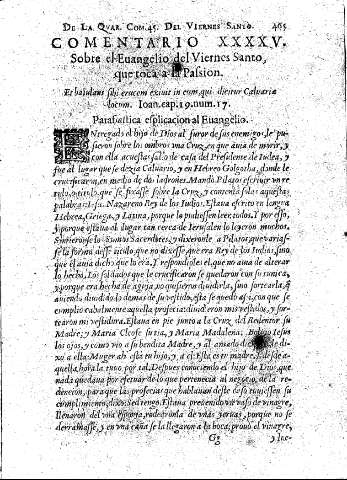 DE LA QVAR. COM. 45. DEL VIERNES SANTO. 465
COMENTARIO XXXXV.
Sobre el Euangelio del Viernes Santo,
que toca a la Passion.
Et baiulans sibi crucem exiuit in eum, qui dicitur Caluariæ
locum. Ioan. cap. 19. num. 17.
Parafrastica esplicacion al Euangelio.
ENtregado el hijo de Dios al furor de sus enemigos, le pu-
sieron sobre los ombros vna Cruz, en que auia de morir, y
con ella acuestas salio de casa del Presidente de Iudea, y
fue al lugar que se dezia Caluario, y en Hebreo Golgotha, donde le
crucificaron, en medio de dos ladrones. Mandò Pilatos escriuir vn re
tulo, o titulo, que se fixasse sobre la Cruz, y contenia solas aquestas
palabras: Iesus Nazareno Rey de los Iudios. Estaua escrito en lengua
Hebrea, Griega, y Latina, porque lo pudiessen leer todos. Y por esso,
y porque estaua el lugar tan cerca de Ierusalen lo leyeron muchos.
Sintieronse los Sumos Sacerdotes, y dixeronle a Pilatos que varias-
se la forma del titulo, que no dixesse, que era Rey de los Iudios, sino
que el auia dicho que lo era. Y respondioles el, que no auia de alterar
lo hecho. Los soldados que le crucificaron se quedaron con su tunica,
y porque era hecha de aguja, no quisieron diuidirla, sino sortearla,
auiendo diuidido lo demas de su vestido, esta se quedò assi, con que se
cumplio cabalmente aquella profecia: diuidieron mis vestidos, y
sortearon mi vestidura. Estaua en pie junto a la Cruz del Redentor su
Madre, y Maria Cleofe su tia, y Maria Madalena. Boluio Iesus
los ojos, y como vio a su bendita Madre, y al amado dicipulo, di-
xo a ella: Muger ahi està tu hijo, y a el: Esta es tu madre. Y desde a-
quella hora la tuuo por tal. Despues conociendo el hijo de Dios, que
nada quedaua por efetuar de lo que pertenecia al negocio de la re-
dencion, para que las profecias que hablauan desto tuuiessen su
cumplimiento, dixo: Sed tengo. Estaua preuenido vn vaso de vinagre,
llenaron del vna esponja, rodearonla de vnas yeruas, porque no se
derramasse, y en vna caña se la llegaron a la boca: prouò el vinagre,
Gg y inc-